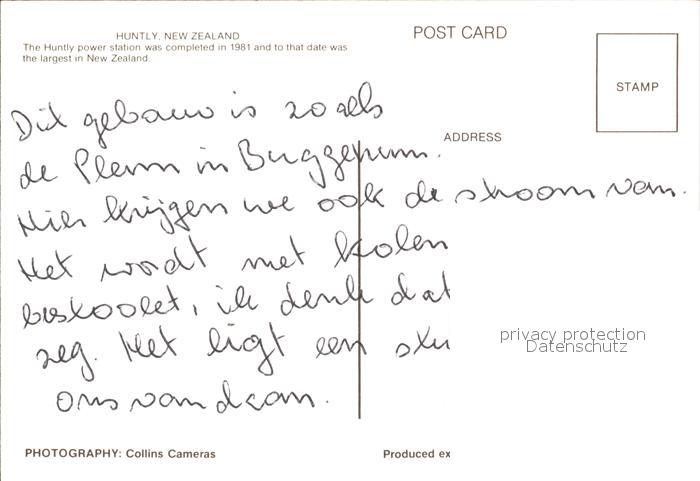 HUNTLY, NEW ZEALAND
The Huntly power station was completed in 1981 and to that date was
the largest in New Zealand.
POST CARD
STAMP
ADDRESS
Dit gebouw is zoals
de Plem in Buggenum.
Hier krijgen we ook de stroom van.
Het wordt met kolen
bestookt, ik denk dat
zeg. Het ligt een stu
ons vandaan.
privacy protection
Datenschutz
PHOTOGRAPHY: Collins Cameras
Produced ex